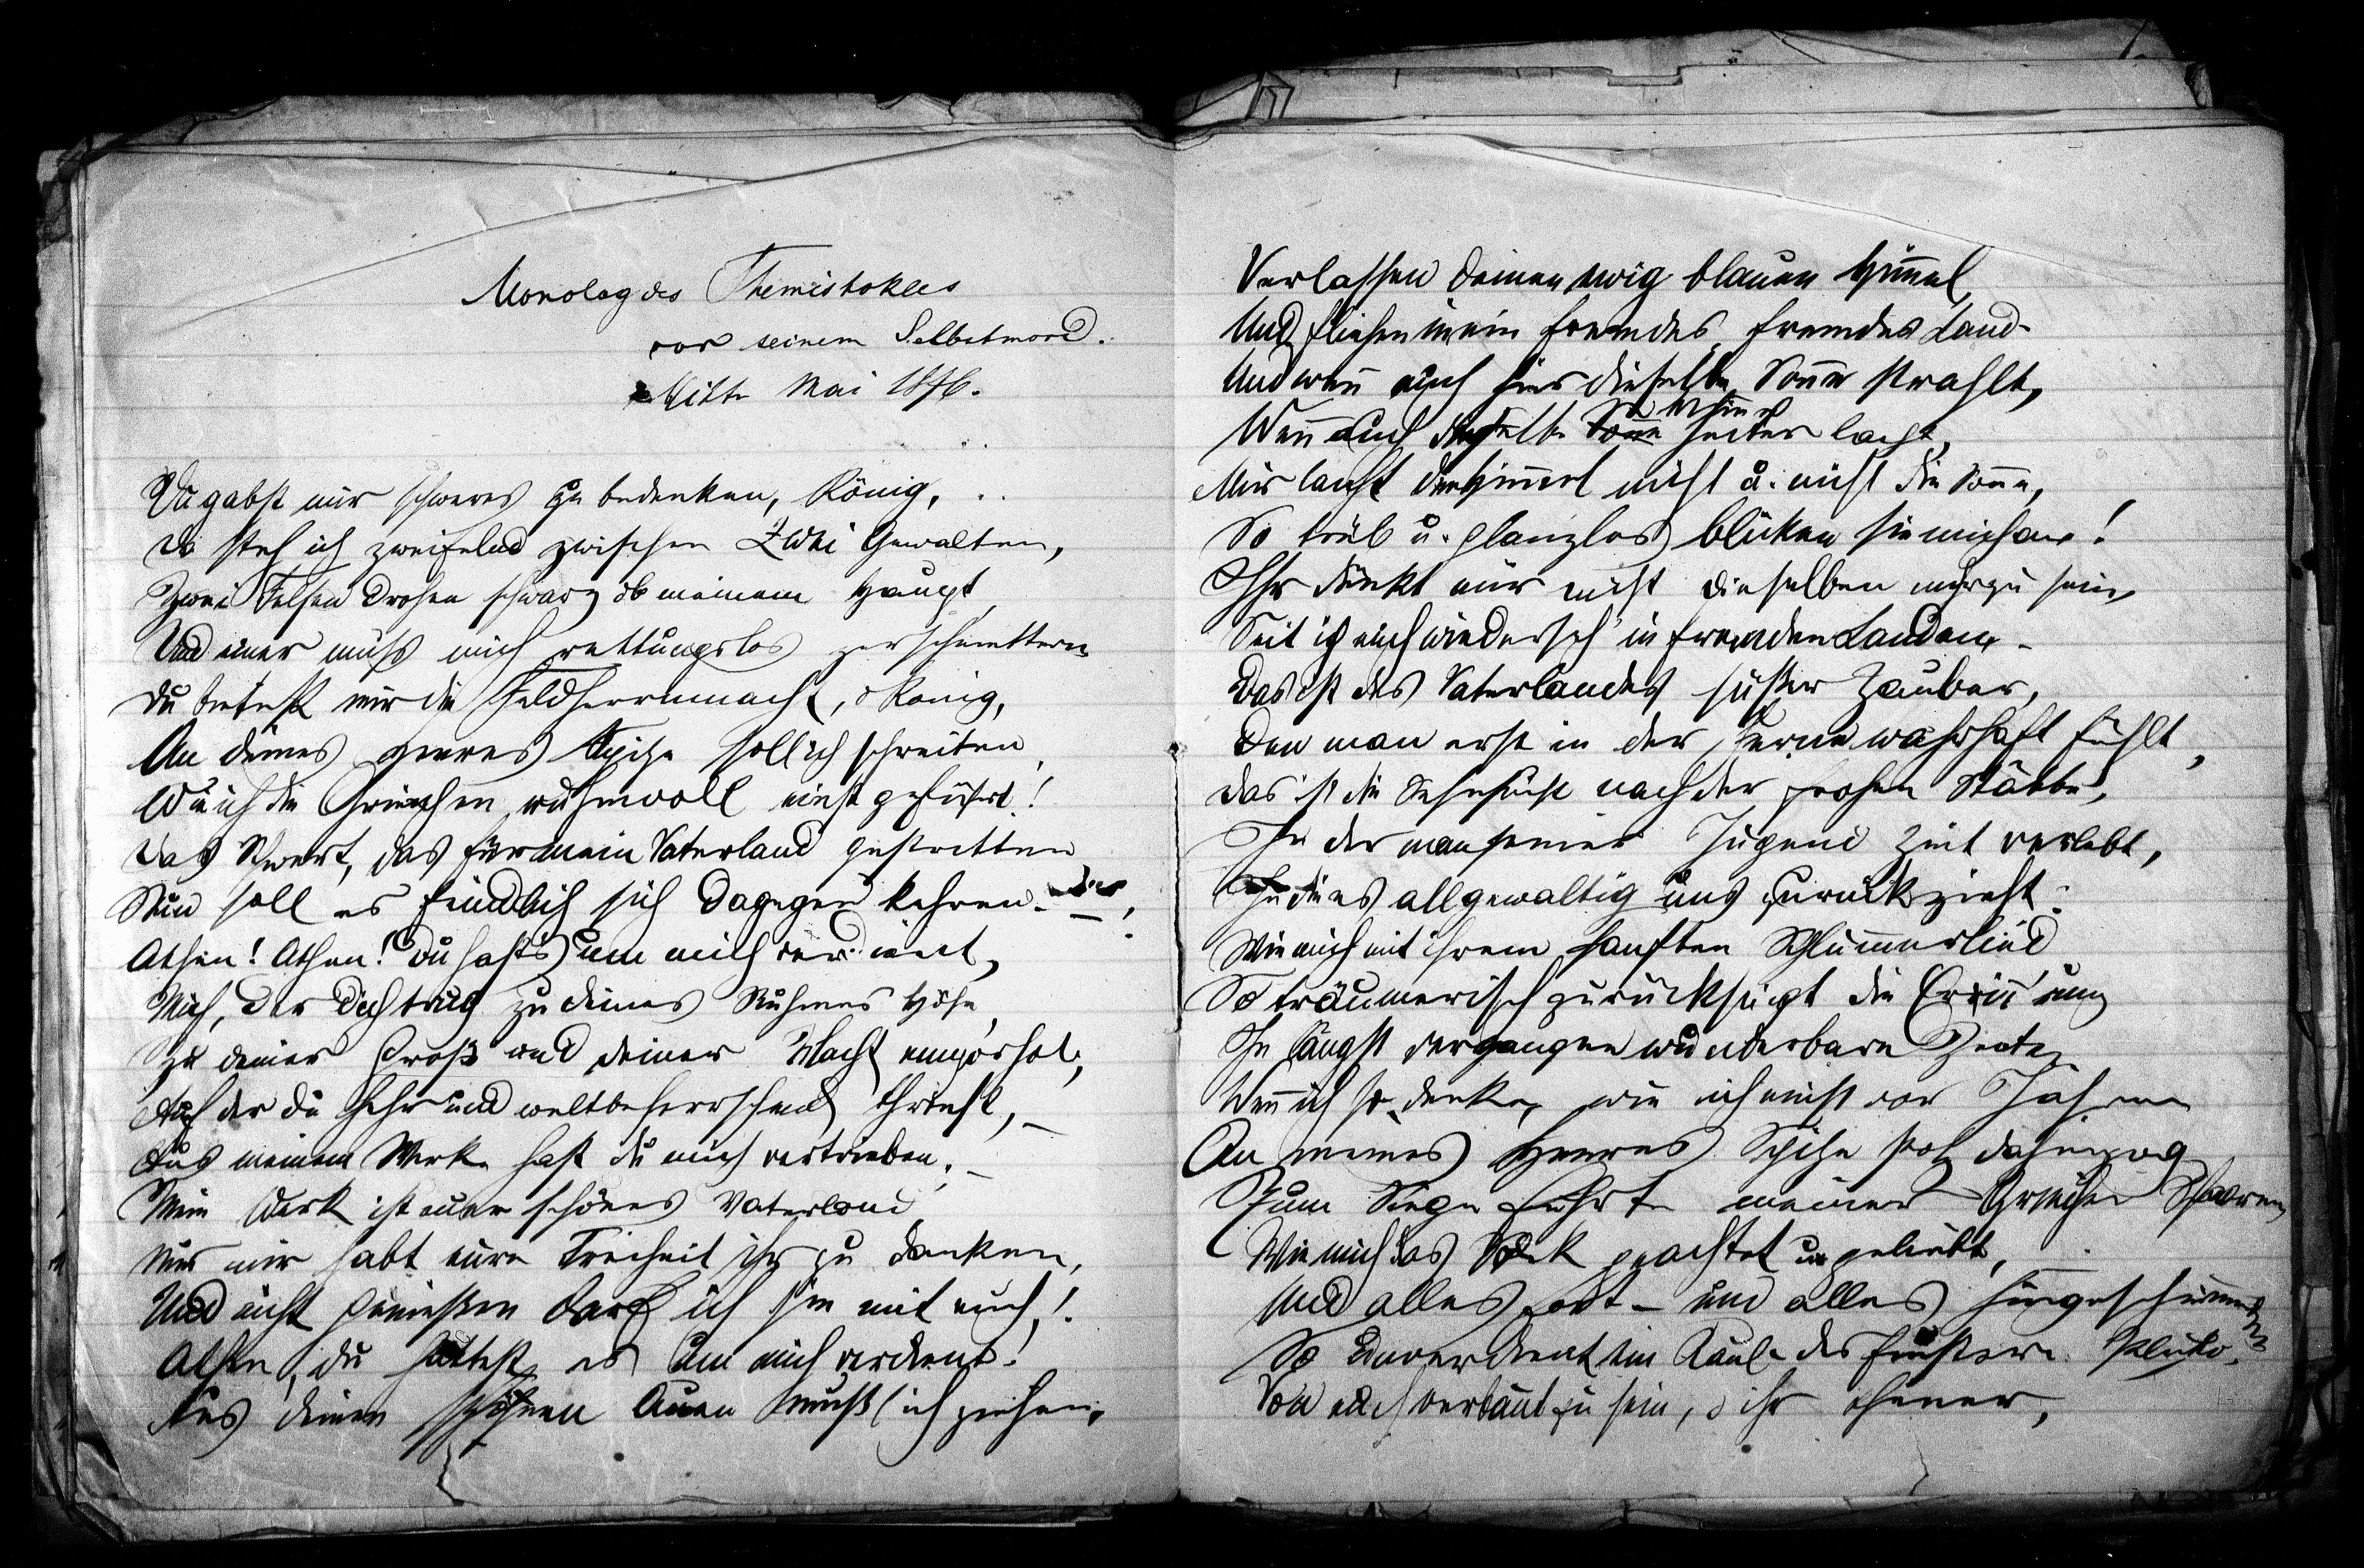 Monolog des Themistokles
vor seinem Selbstmord.
Mitte Mai 1876.
Du gabst mir schweres zu bedenken, König,
Da steh ich zweifelnd zwischen zwei Gewalten,
Zwei Felsen drohen schwarz ob meinem Haupt,
Und einer muß mich rettungslos zerschmettern
Du bietest mir die Feldherrnmacht, o König,
An deines Heeres Spitze soll ich schreiten,
Wie ich die Griechen ruhmvoll einst geführt!
Das Schwert, das für mein Vaterland gestritten
Nun soll es feindlich sich dagegen kehren. –
Athen! Athen! Du hast's um mich verdient,
Mich, der dich trug zu deines Ruhmes Höhe,
Zu deiner Größ und deiner Macht emporhob,
Auf der du hehr und weltbeherrschend thronst, –
Aus meinem Werke hast du mich vertrieben. –
Mein Werk ist euer schönes Vaterland
Nur mir habt eure Freiheit ihr zu danken,
Und nicht genießen darf ich sie mit euch!
Athen, du hattest es um mich verdient!
Aus deinen schönen Auen mußt ich ziehen,
Verlassen deinen ewig blauen Himmel,
Und fliehen in ein fremdes, fremdes Land –
Und wenn auch hier dieselbe Sonne strahlt,
Wenn auch derselbe Himmel heiter lacht,
Mir lacht der Himmel nicht u. nicht die Sonne,
So trüb u. glanzlos blicken sie mich an!
Ihr dünkt mir nicht dieselben mehr zu sein,
Seit ich euch wiederseh' in fremden Landen –
Das ist des Vaterlandes süßer Zauber,
Den man erst in der Ferne wahrhaft fühlt,
Das ist die Sehnsucht nach der frohen Stätte,
In der man seiner Jugend Zeit verlebt,
die es allgewaltig uns zurückzieht.
Wie mich mit ihrem sanften Schlummerlied
So träumerisch zurücksingt die Erinn'rung
In längst vergangne wunderbare Zeiten
Wenn ich so denke, wie ich einst vor Jahren
An meines Heeres Spitze stolz dahinzog
Zum Siege führte meiner Griechen Schaaren,
Wie mich das Volk geachtet u. geliebt,
Und alles fort – und alles hingeschwunden
So unverdient ein Raub des finstern Pluto,
Von euch verbannt zu sein, o ihr